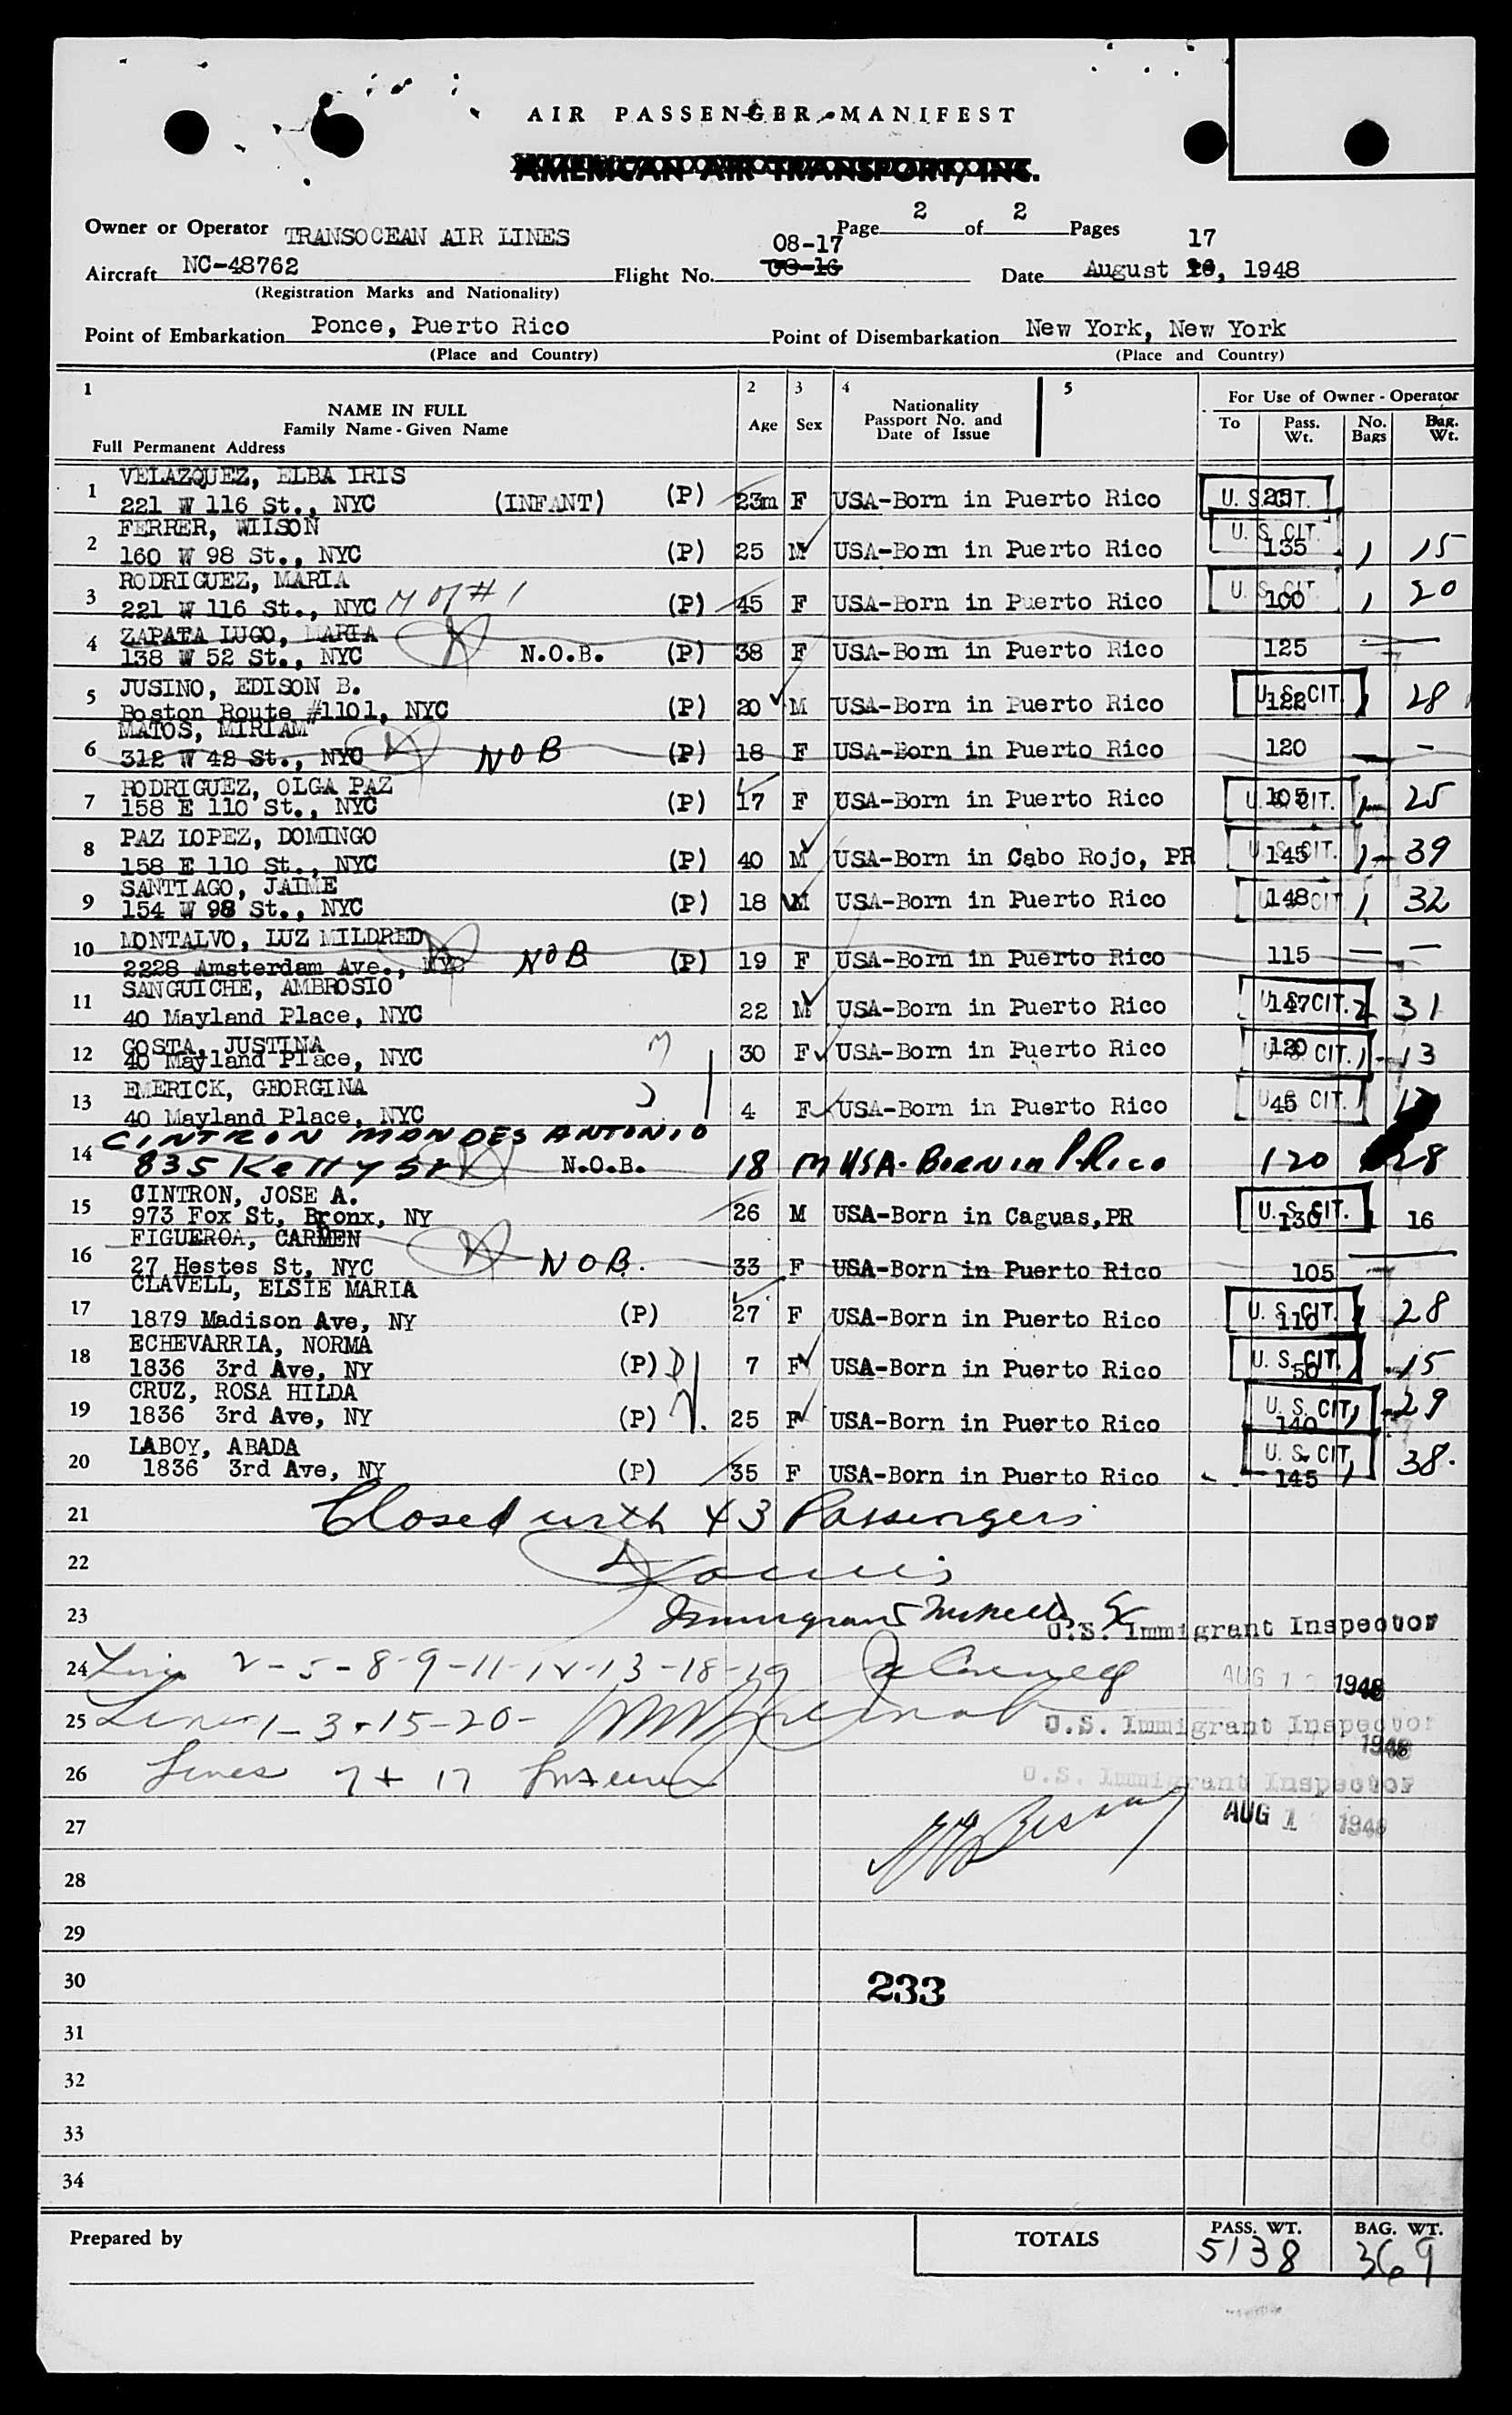 AIR PASSENGER MANIFEST
AMERICAN AIR TRANSPORT, INC.
Owner or Operator TRANSOCEAN AIR LINES Page 2 of 2 Pages
Aircraft NC-48762 Flight No. 08-17 08-16 Date August 17 16, 1948
(Registration Marks and Nationality)
Point of Embarkation Ponce, Puerto Rico Point of Disembarkation New York, New York
(Place and Country) (Place and Country)
1 2 3 4 5
NAME IN FULL
Family Name - Given Name
Full Permanent Address
Age Sex Nationality Passport No. and Date of Issue
For Use of Owner - Operator
To Pass. Wt. No. Bags Bag. Wt.
VELAZQUEZ, ELBA IRIS
1 221 W 116 St., NYC (INFANT) (P) 23m F USA-Born in Puerto Rico U. S. CIT. 25
FERRER, WIISON
2 160 W 98 St., NYC (P) 25 M USA-Born in Puerto Rico U. S. CIT. 135 1 15
RODRIGUEZ, MARIA
3 221 W 116 St., NYC M of # 1 (P) 45 F USA-Born in Puerto Rico U. S. CIT. 100 1 20
ZAPATA LUGO, MARIA
4 138 W 52 St., NYC N.O.B. (P) 38 F USA-Born in Puerto Rico 125 — —
JUSINO, EDISON B.
5 Boston Route #1101, NYC (P) 20 M USA-Born in Puerto Rico U. S. CIT. 122 1 28
MATOS, MIRIAM
6 312 W 48 St., NYC NOB (P) 18 F USA-Born in Puerto Rico 120 — —
RODRIGUEZ, OLGA PAZ
7 158 E 110 St., NYC (P) 17 F USA-Born in Puerto Rico U. S. CIT. 105 1 25
PAZ LOPEZ, DOMINGO
8 158 E 110 St., NYC (P) 40 M USA-Born in Cabo Rojo, PR U. S. CIT. 145 1 39
SANTIAGO, JAIME
9 154 W 98 St., NYC (P) 18 M USA-Born in Puerto Rico U. S. CIT 148 1 32
MONTALVO, LUZ MILDRED
10 2228 Amsterdam Ave., NYC NOB (P) 19 F USA-Born in Puerto Rico 115 — —
SANGUICHE, AMBROSIO
11 40 Mayland Place, NYC 22 M USA-Born in Puerto Rico U. S. CIT. 147 2 31
COSTA, JUSTINA
12 40 Mayland Place, NYC M 30 F USA-Born in Puerto Rico U. S. CIT. 120 1 13
EMERICK, GEORGINA
13 40 Mayland Place, NYC 4 F USA-Born in Puerto Rico U. S. CIT. 45 1
CINTRON MONDES ANTONIO
14 835 Kelly St N.O.B. 18 M USA-Born in P Rico 120 28
CINTRON, JOSE A.
15 973 Fox St, Bronx, NY 26 M USA-Born in Caguas, PR U. S. CIT. 130 1 16
FIGUEROA, CARMEN
16 27 Hestes St, NYC NOB. 33 F USA-Born in Puerto Rico 105 —
CLAVELL, ELSIE MARIA
17 1879 Madison Ave, NY (P) 27 F USA-Born in Puerto Rico U. S. CIT. 110 1 28
ECHEVARRIA, NORMA
18 1836 3rd Ave, NY (P) D 7 F USA-Born in Puerto Rico U. S. CIT. 50 1 15
CRUZ, ROSA HILDA
19 1836 3rd Ave, NY (P) M. 25 F USA-Born in Puerto Rico U. S. CIT, 140 1 29
LABOY, ABADA
20 1836 3rd Ave, NY (P) 35 F USA-Born in Puerto Rico U. S. CIT, 145 1 38.
21 Closed with 43 Passengers
22
23 Immigrant U.S. Immigrant Inspector
24 Lines 2-5-8-9-11-12-13-18-19 AUG 1 1948
25 Lines 1-3-15-20- U.S. Immigrant Inspector
1948
26 Lines 7 + 17 U.S. Immigrant Inspector
27 AUG 1 1948
28
29
30 233
31
32
33
34
Prepared by TOTALS PASS. WT. BAG. WT.
5138 369